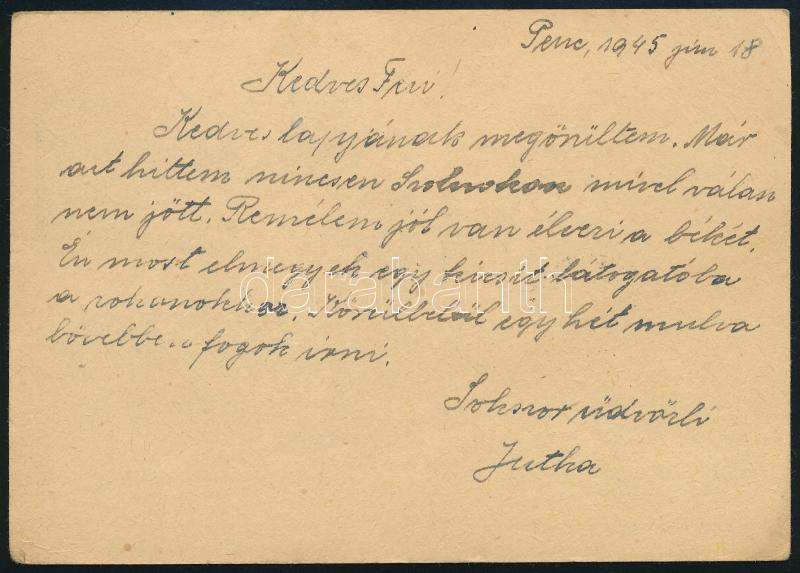 Penc, 1945 jún 18
Kedves Frici!
Kedves lapjának megörültem. Már
azt hittem nincsen Szolnokon mivel válasz
nem jött. Remélem jól van élvezi a békét.
Én most elmegyek egy kicsit látogatóba
a rokonokhoz. Körülbelül egy hét mulva
bövebben fogok irni.
Sokszor üdvözli
Jutka
darabanth